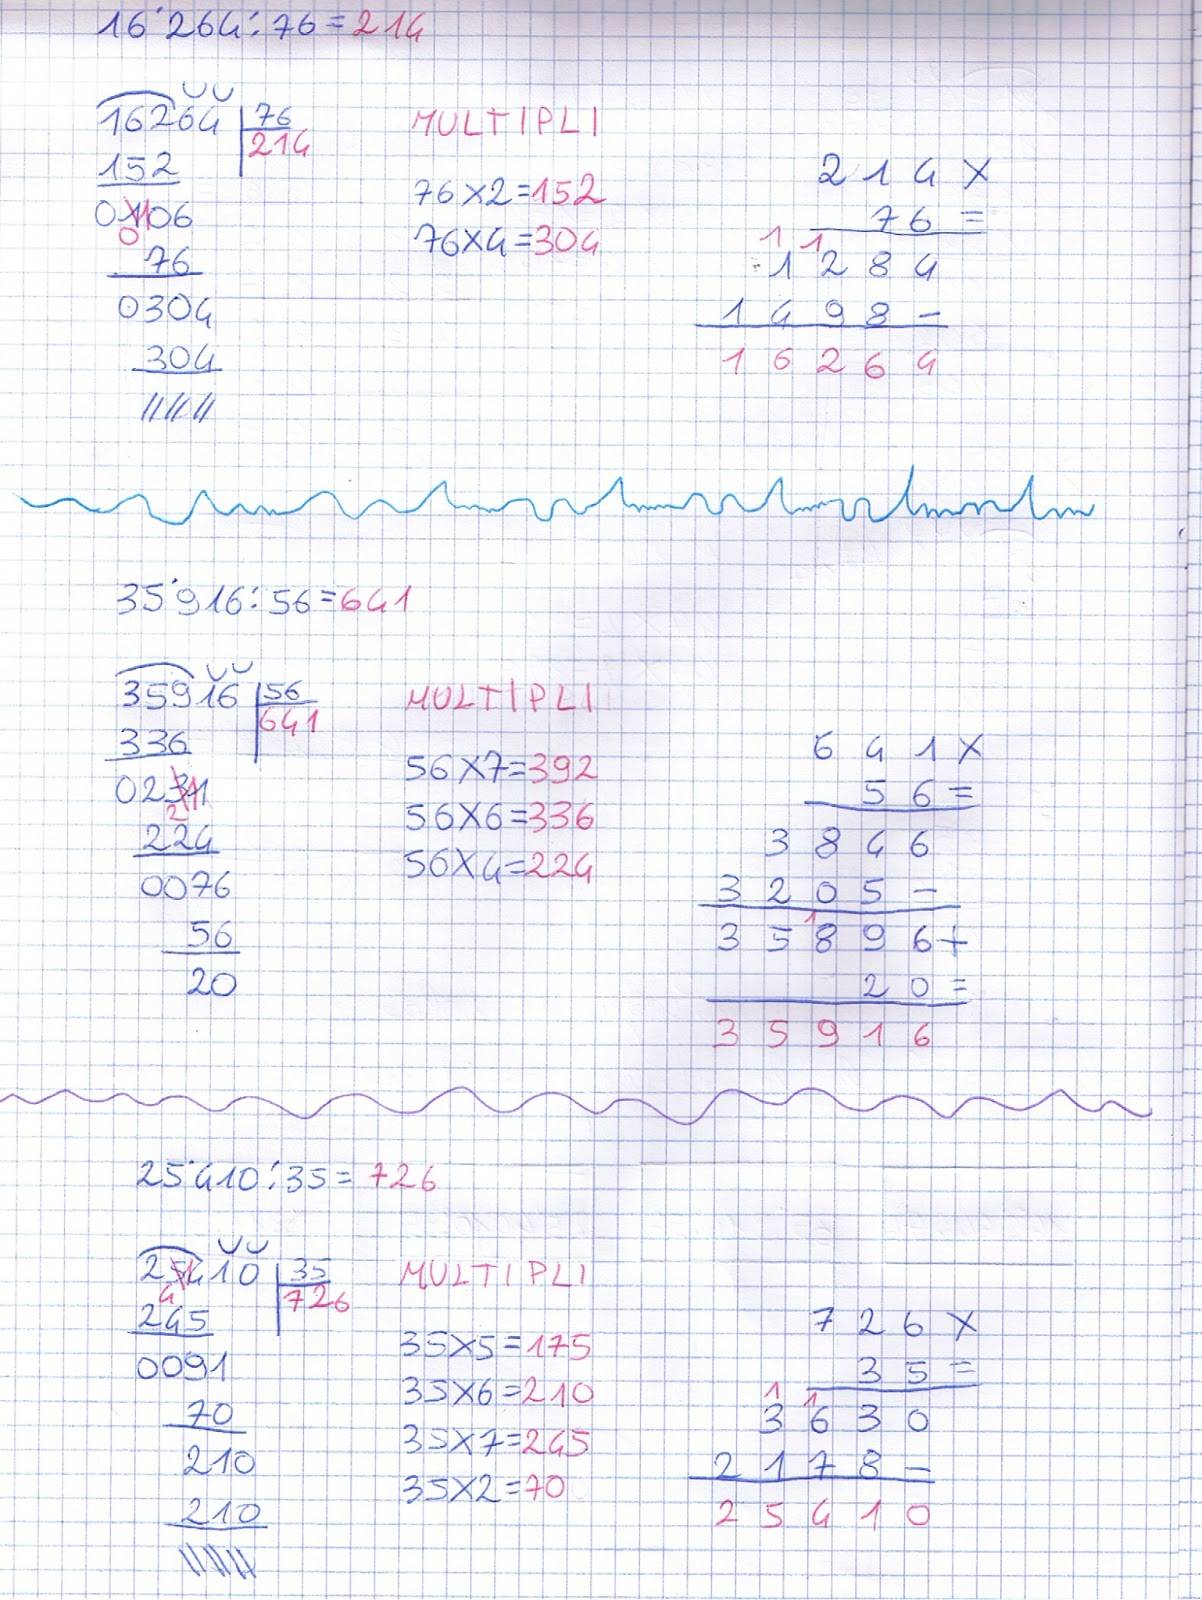 16˙264:76=214
16264 76
214
152
0106
0
76
0304
304
MULTIPLI
76×2=152
76×4=304
214×
76=
1 1
1284
1498-
16264
35˙916:56=641
35916 56
641
336
0231
2
224
0076
56
20
MULTIPLI
56×7=392
56×6=336
56×4=224
641×
56=
3846
3205-
1
35896+
20=
35916
25˙410:35=726
25410 35
4 726
245
0091
70
210
210
MULTIPLI
35×5=175
35×6=210
35×7=245
35×2=70
726×
35=
1 1
3630
2178-
25410